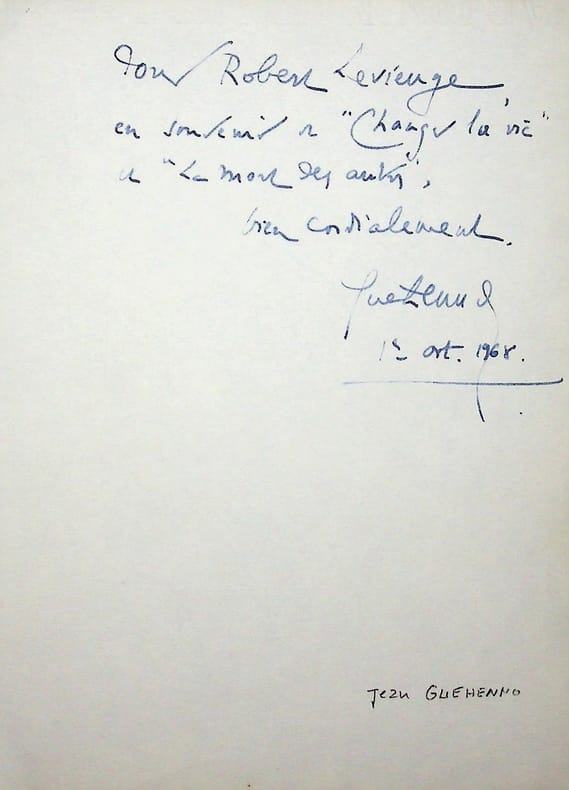 Pour Robert Levienge,
en souvenir de "Changer la vie"
et "La mort des autres",
bien cordialement.
Guéhenno
1er oct. 1968.
Jean GUEHENNO